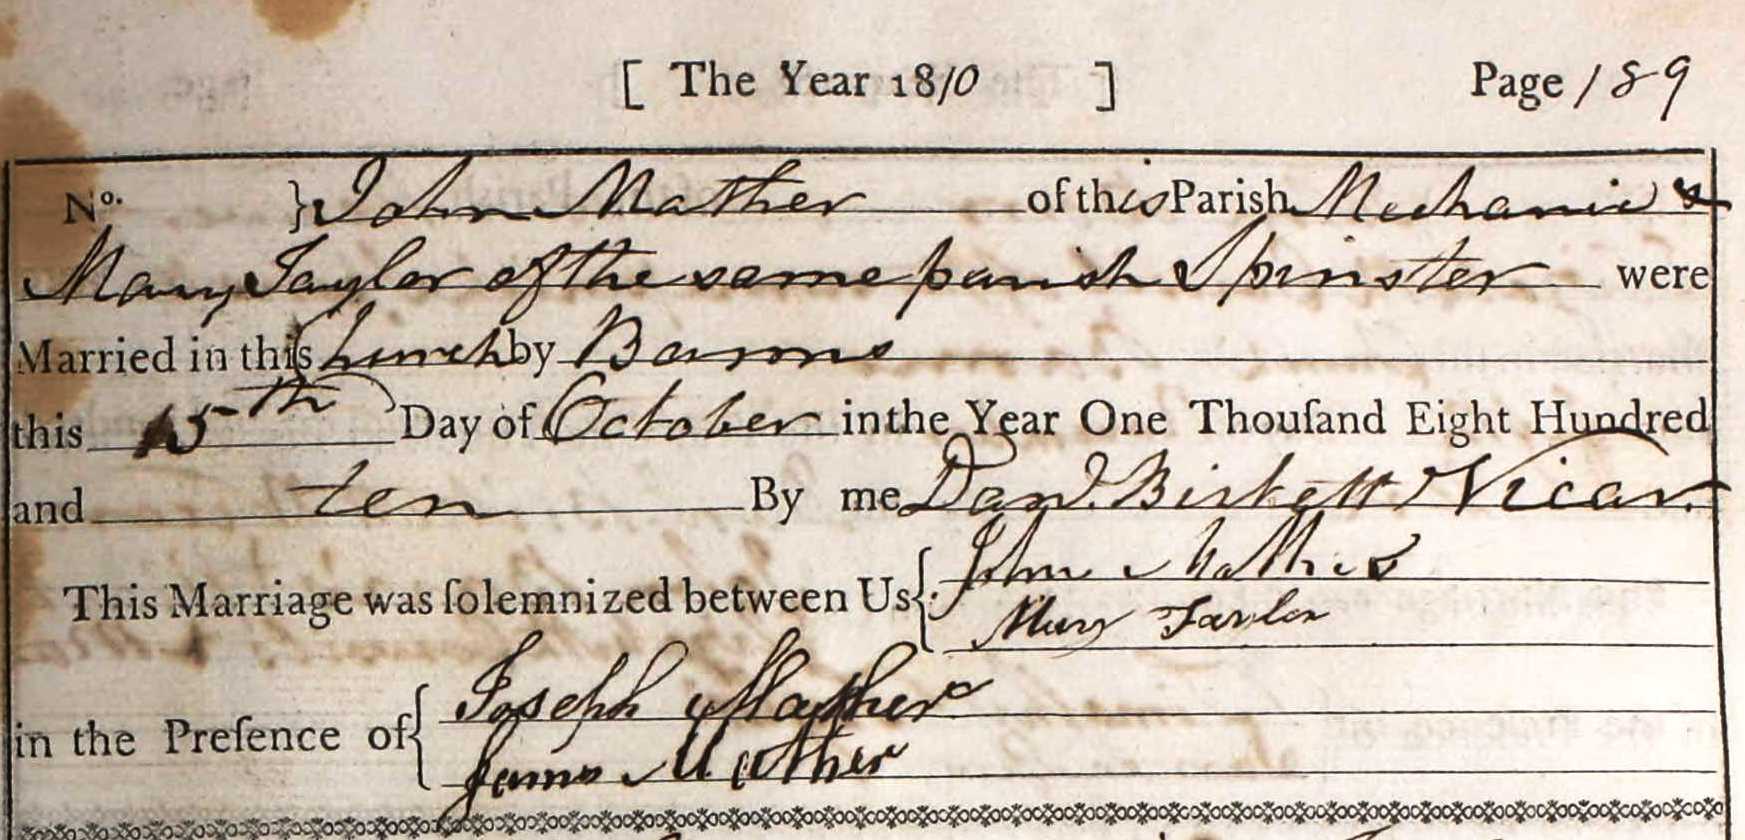 [ The Year 1810 ] Page 189
No. } John Mather of this Parish Mechanic &
Mary Taylor of the same parish Spinster were
Married in this Church by Banns
this 15th Day of October in the Year One Thouſand Eight Hundred
and ten By me Danl. Birkett Vicar.
This Marriage was ſolemnized between Us { John Mather
Mary Taylor
in the Preſence of { Joseph Mather
James Mather